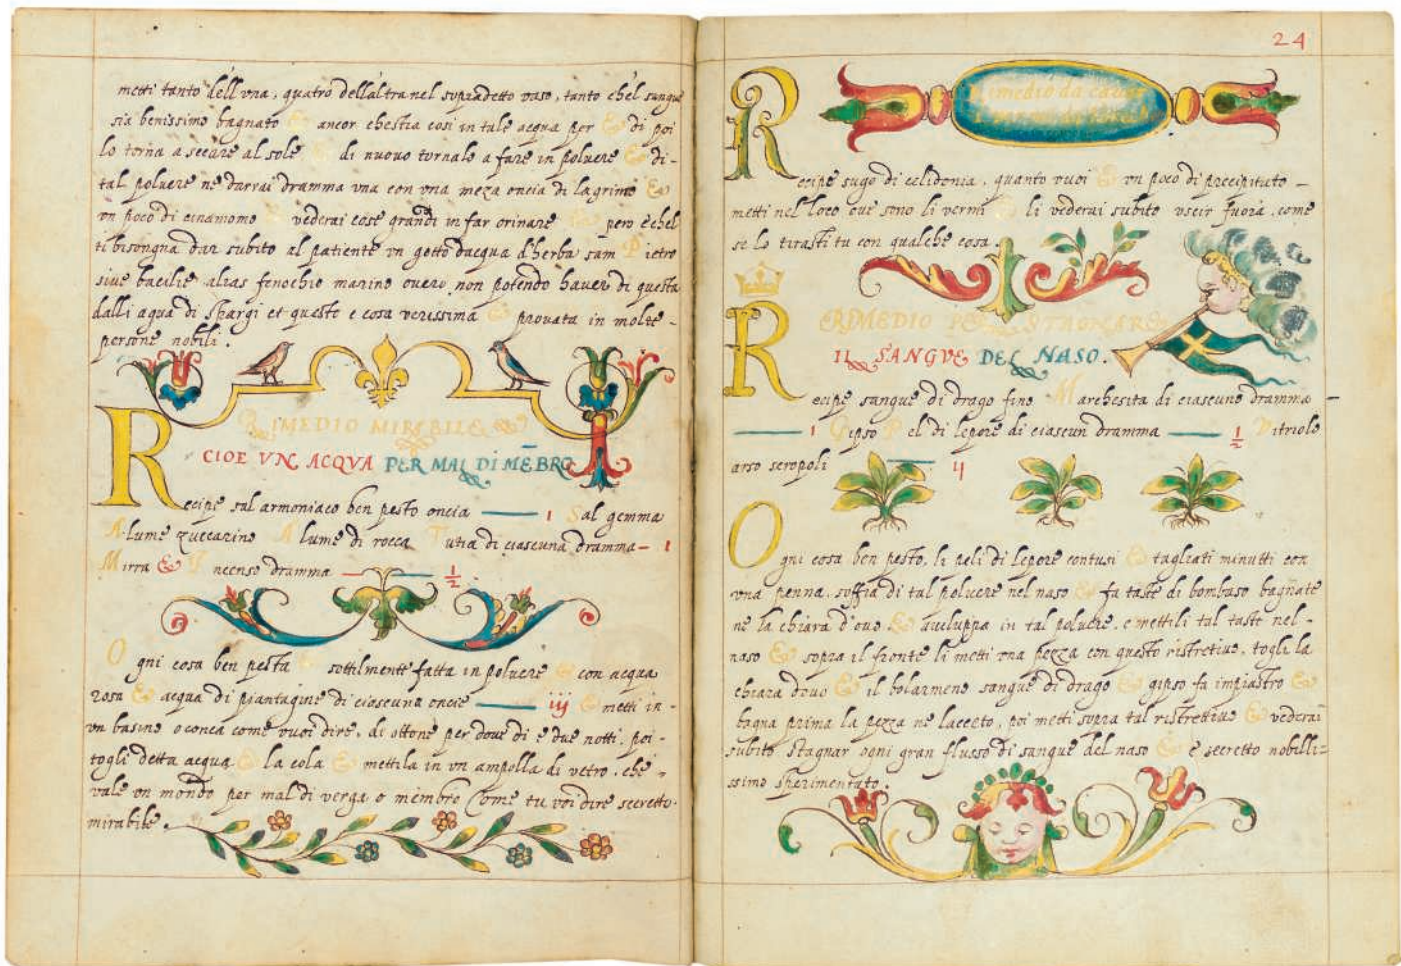 metti tanto dell'vna, quatro dell'altra nel sopradetto vaso, tanto ch'el sangue
sia benissimo bagnato & ancor che stia cosi in tale acqua per & di poi
lo torna a secare al sole & di nuouo tornale a fare in poluere & di-
tal poluere ne darrai dramma vna con vna meza oncia di lagrimo &
vn poco di cinamomo & vederai cose grandi in far orinare pero è chel
ti bisongna dar subito al patiente vn gotto dacqua d'herba sam Pietro
siue bacilie alias fenochio marino ouero non potendo hauer di questa
dalli aqua di spargi et questo e cosa verissima & prouata in molte-
persone nobili.
RIMEDIO MIRABILE
CIOE VN ACQVA PER MAL DI MĒBRO
Recipe sal armoniaco ben pesto oncia — 1 Sal gemma
Alume zuccarino Alume di rocca Tutia di ciascuna dramma — 1
Mirra & Incenso dramma — 1/2
Ogni cosa ben pesta & sottilmente fatta in poluere & con acqua
rosa & acqua di piantagine di ciascuna oncie — iij & metti in-
vn basino o conca come vuoi dire, di ottone per doue di e due notti, poi-
togli detta acqua & la cola & mettila in vn ampolla di vetro, che
vale vn mondo per mal di verga o membro Come tu voi dire secretto
mirabile.
24
Rimedio da cauar
Recipe sugo di celidonia, quanto vuoi & vn poco di precipitato —
metti nel loco oue sono li vermi & li vederai subito vscir fuora, come
se lo tirasti tu con qualche cosa.
RIMEDIO PER STAGNARE
IL SANGVE DEL NASO.
Recipe sangue di drago fino Marchesita di ciascuno dramma —
— 1 Gipso Pel di lepore di ciascun dramma — 1/2 Vitriolo
arso scropoli — ij
Ogni cosa ben pesto, li peli di lepore contusi & tagliati minutti con
vna penna, soffia di tal poluere nel naso & fa taste di bombaso bagnate
ne la chiara d'ouo & auiluppa in tal poluere, e mettili tal taste nel-
naso & sopra il fronte li metti vna pezza con questo ristretiuo, togli la
chiara douo & il bolarmeno sangue di drago & gipso fa impiastro &
bagna prima la pezza ne laceto, poi metti sopra tal ristrettiuo & vederai
subito stagnar ogni gran flusso di sangue del naso & è secretto nobilli-
ssimo sperimentato.